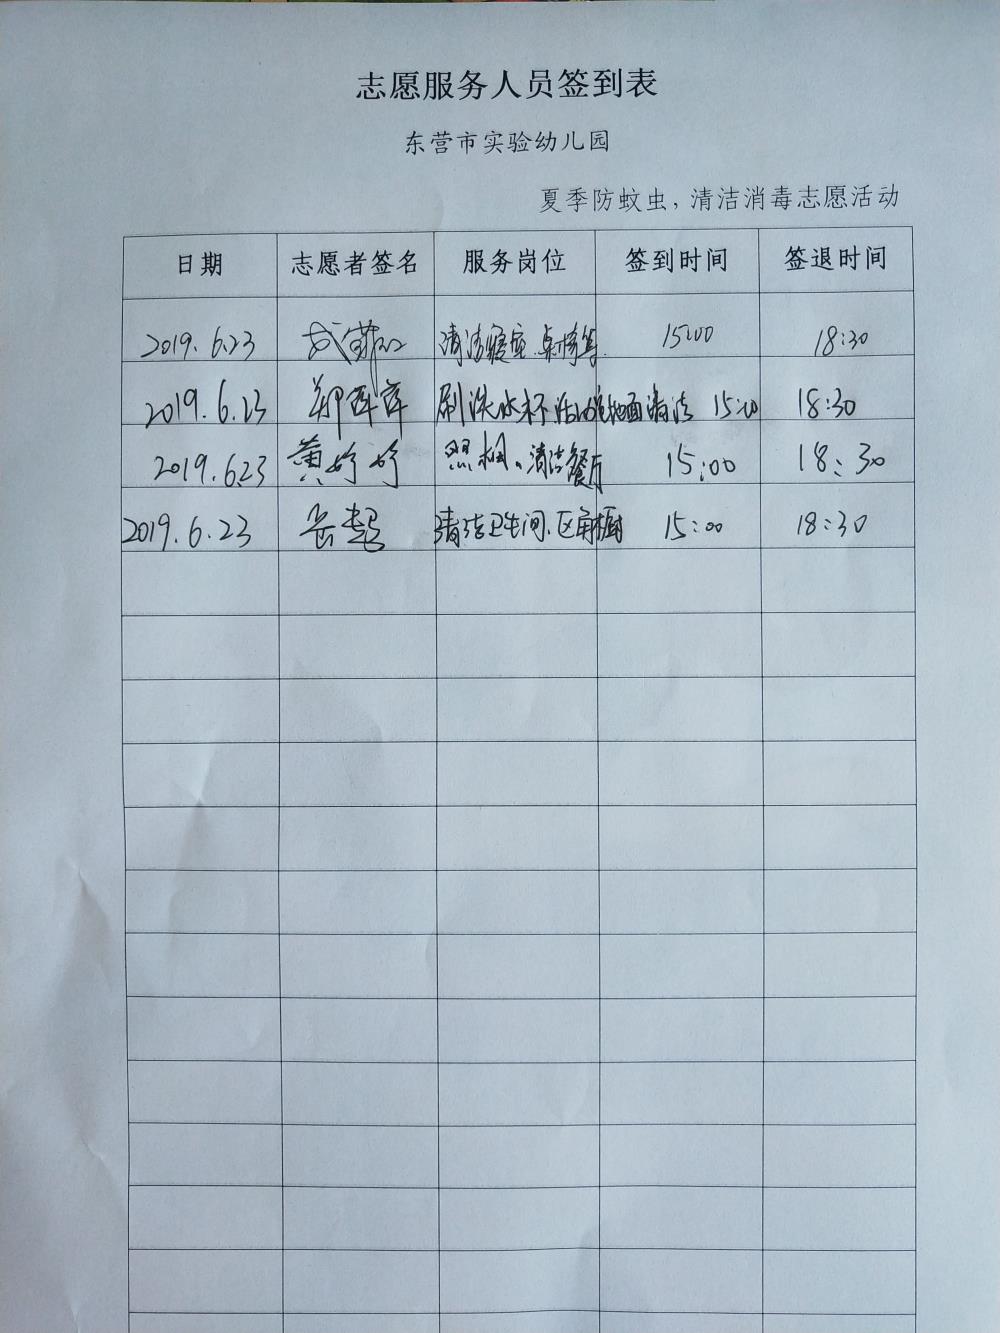 志愿服务人员签到表
东营市实验幼儿园
夏季防蚊虫，清洁消毒志愿活动
日期 志愿者签名 服务岗位 签到时间 签退时间
2019.6.23 清洁寝室、桌椅等 15:00 18:30
2019.6.23 刷洗水杯 活动室地面清洁 15:00 18:30
2019.6.23 黄婷婷 照相、清洁餐厅 15:00 18:30
2019.6.23 清洁卫生间、区角橱 15:00 18:30